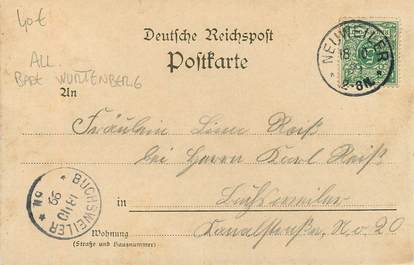 40€
ALL.
BADE WURTENBERG
Deutsche Reichspost
Postkarte
NEUWEILER
18
2-3N.
An
Fräulein Lina Reiß
bei Herrn Karl Reiß
BUCHSWEILER
18/10
99
No
in Buchsweiler
Wohnung Kanalstraße, No. 20
(Straße und Hausnummer)